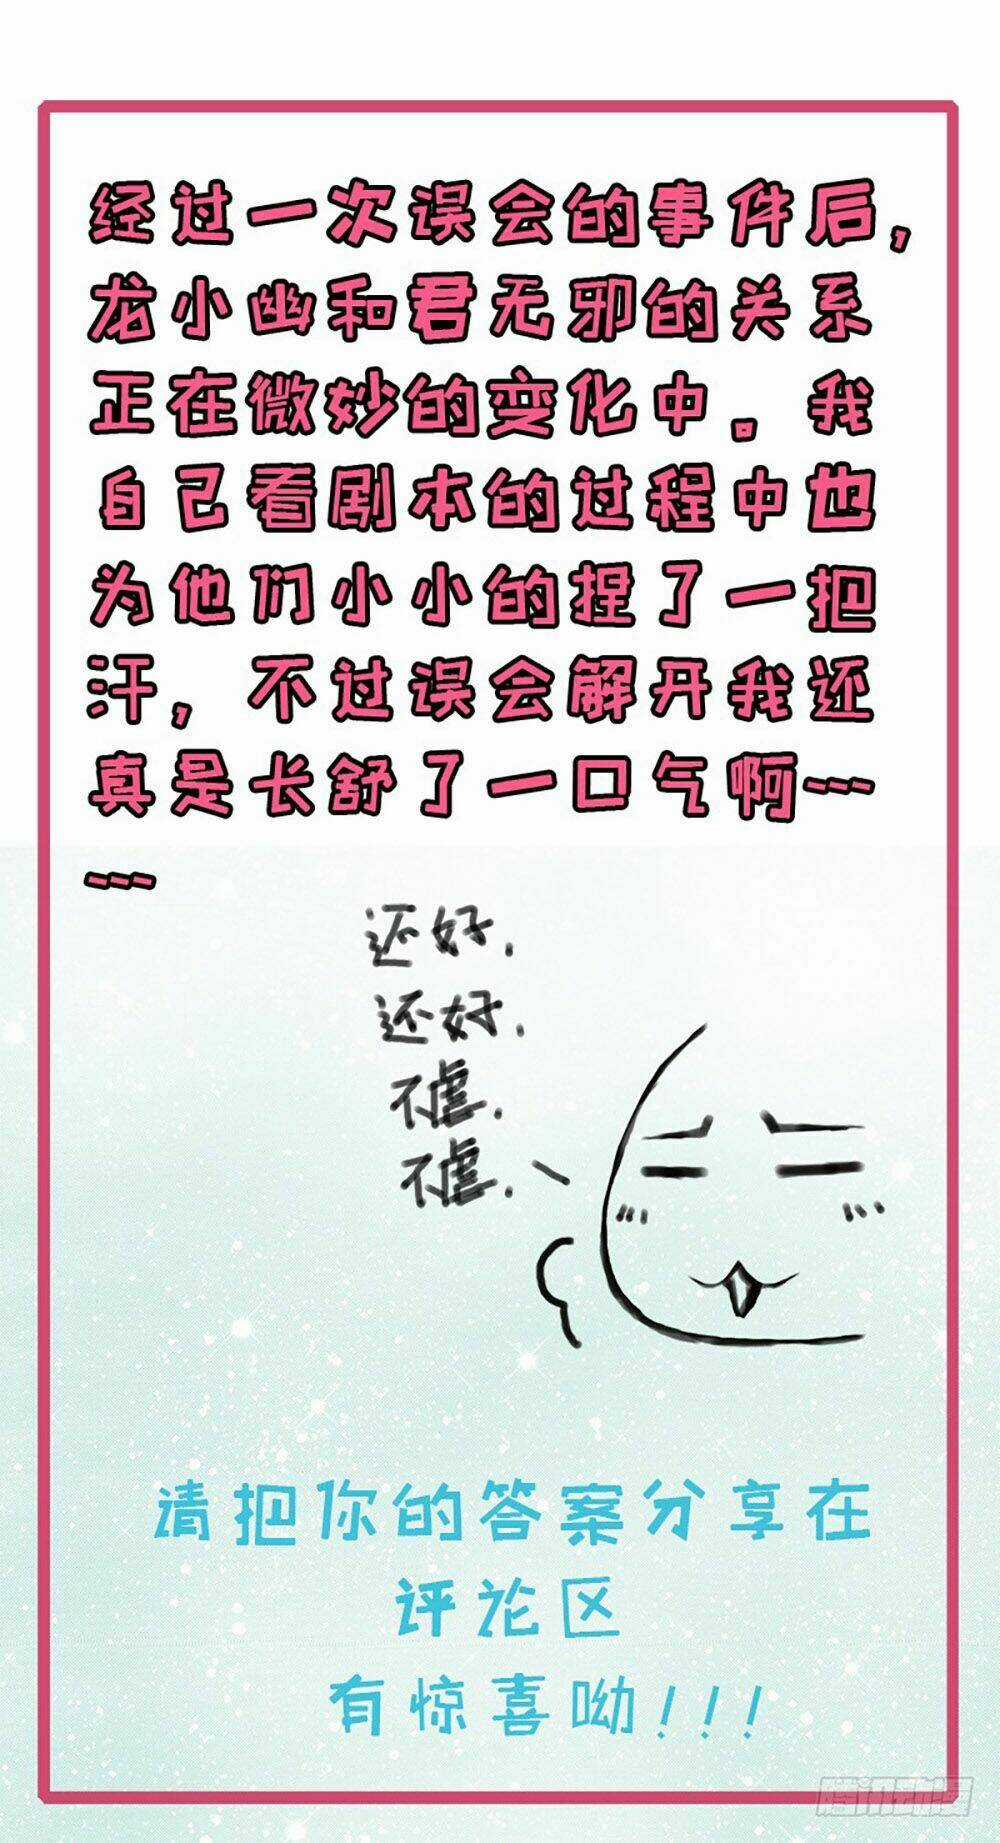 经过一次误会的事件后，
龙小幽和君无邪的关系
正在微妙的变化中。我
自己看剧本的过程中也
为他们小小的捏了一把
汗，不过误会解开我还
真是长舒了一口气啊---
---
还好.
还好.
不虐.
不虐.
请把你的答案分享在
评论区
有惊喜呦!!!
腾讯动漫